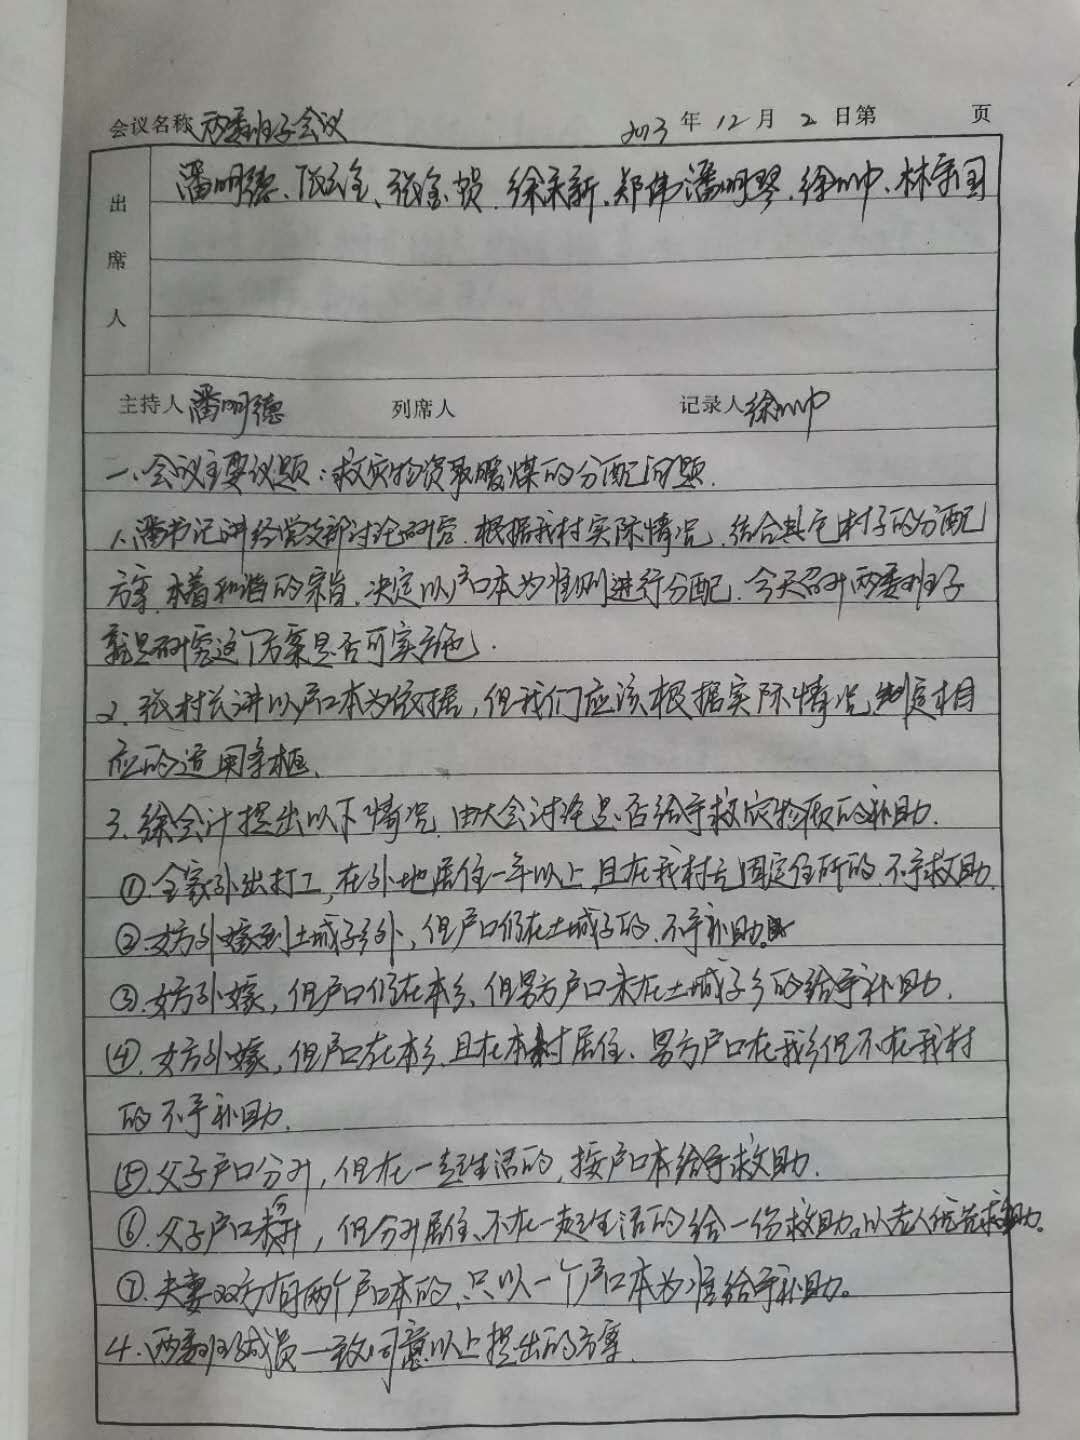 会议名称 两委班子会议 2013 年 12 月 2 日第 页
出席人 潘明德、张金、张金贤、徐永新、郑伟、潘明琴、徐帅、林宇国
主持人 潘明德 列席人 记录人 徐帅
一、会议主要议题：救灾物资取暖煤的分配问题.
1、潘书记讲经党支部讨论研究、根据我村实际情况、结合其它村子的分配
方案、本着和谐的宗旨、决定以户口本为准则进行分配、今天召开两委班子
就是研究这个方案是否可实施.
2、张村长讲以户口本为依据，但我们应该根据实际情况判定相
应的适用条框、
3、徐会计提出以下情况、由大会讨论是否给予救灾物质的补助.
①、全家外出打工，在外地居住一年以上，且在我村无固定住所的、不予救助、
②、女方外嫁到土城子乡外，但户口仍在土城子的、不予补助。
③、女方外嫁，但户口仍在本乡、但男方户口未在土城子乡的给予补助、
④、女方外嫁，但户口在本乡、且在本村居住、男方户口在我乡但不在我村
的不予补助、
⑤、父子户口分开，但在一起生活的，按户口本给予救助、
⑥、父子户口未分开，但分开居住、不在一起生活的给一份救助。以老人优先救助。
⑦、夫妻双方有两个户口本的、只以一个户口本为准给予补助。
4、两委班子成员一致同意以上提出的方案.